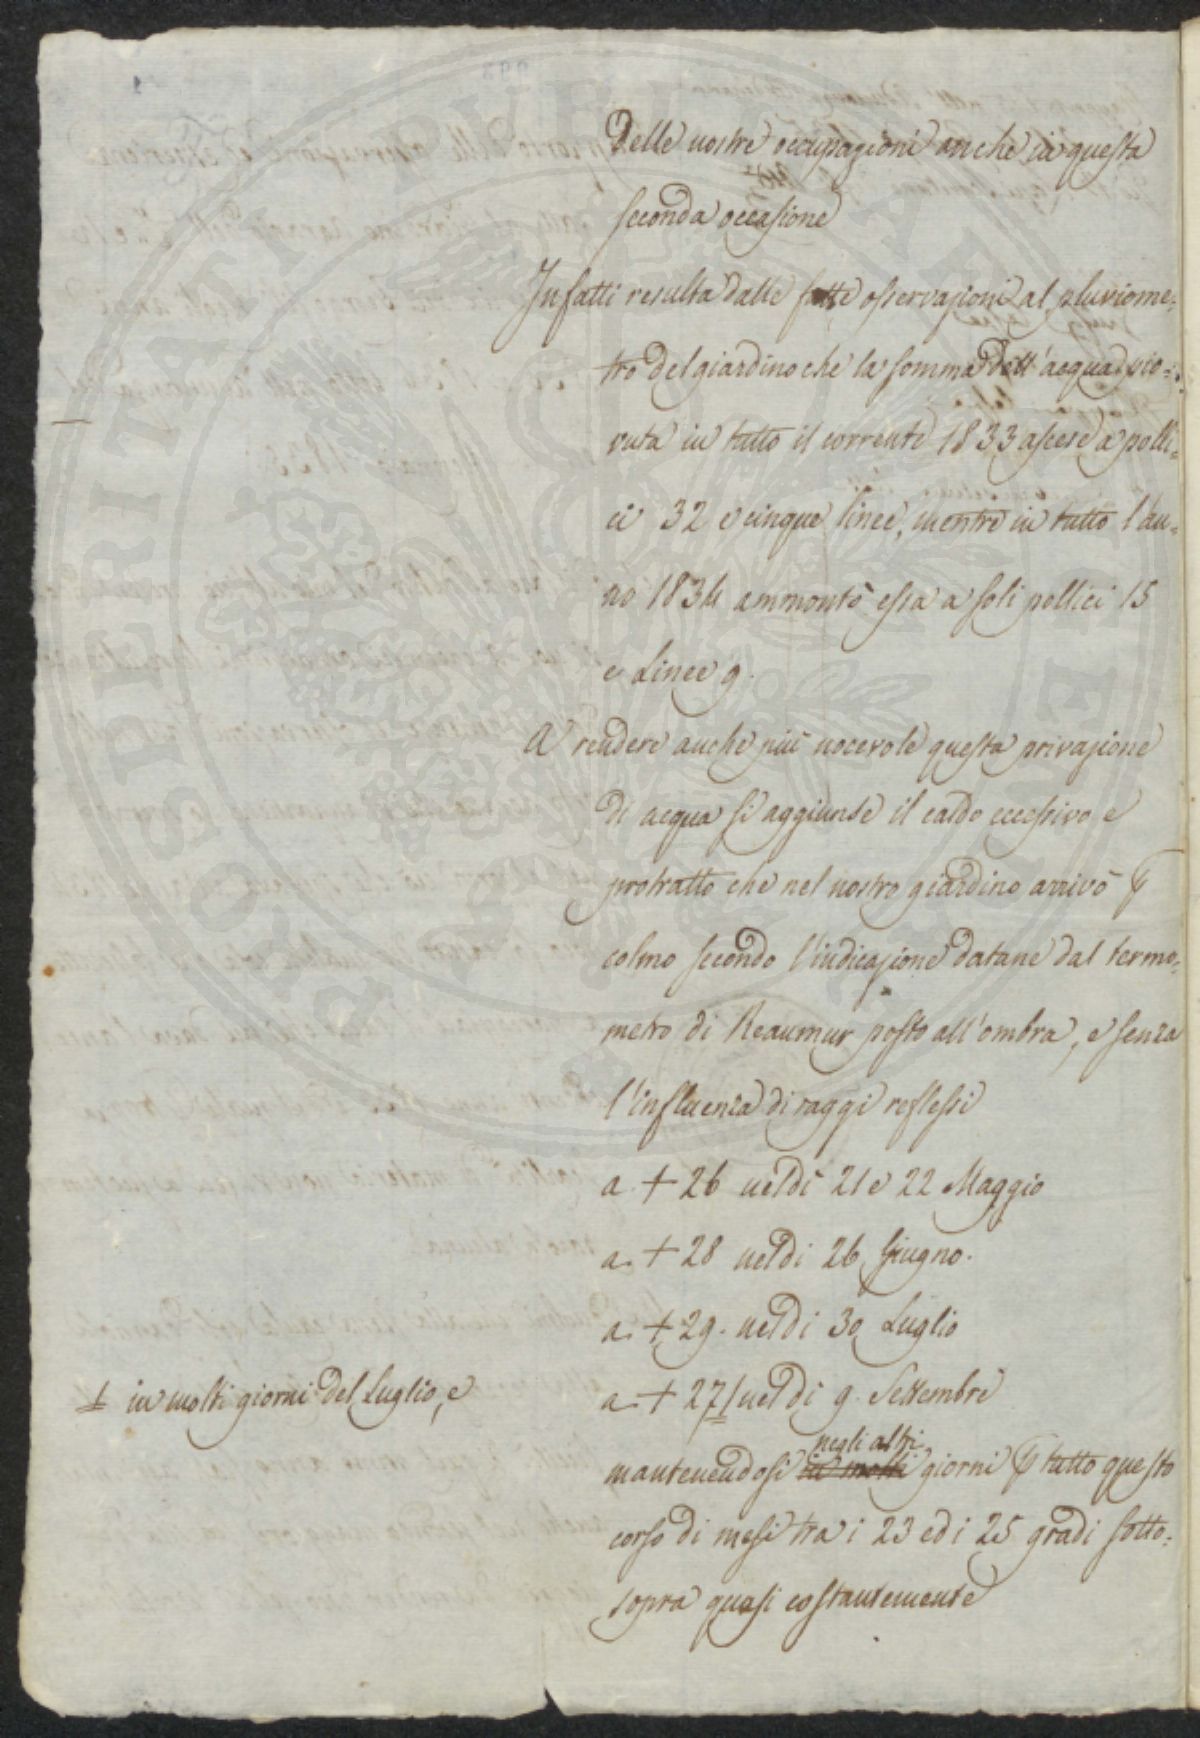 Delle nostre occupazioni anche in questa
seconda occasione
Infatti resulta dalle fatte osservazioni al pluviome=
tro del giardino che la somma dell'acqua pio=
vuta in tutto il corrente 1833 ascese a polli=
ci 32 e cinque linee, mentre in tutto l'an=
no 1834 ammontò essa a soli pollici 15
e Linee 9.
A rendere anche più nocevole questa privazione
di acqua si aggiunse il caldo eccessivo e
protratto che nel nostro giardino arrivò
colmo secondo l'indicazione datane dal termo=
metro di Reaumur posto all'ombra, e senza
l'influenza di raggi reflessi
a + 26 nel dì 21 e 22 Maggio
a. + 28 nel di 26 Giugno.
a. + 29. nel di 30 Luglio
ƚ in molti giorni del Luglio, e
a. + 27 ƚ nel di 9. Settembre
negli altri
mantenendosi in molti giorni tutto questo
corso di mesi tra i 23 ed i 25 gradi sotto=
sopra quasi costantemente
PROSPERITATI PUBLICAE AUGENDAE